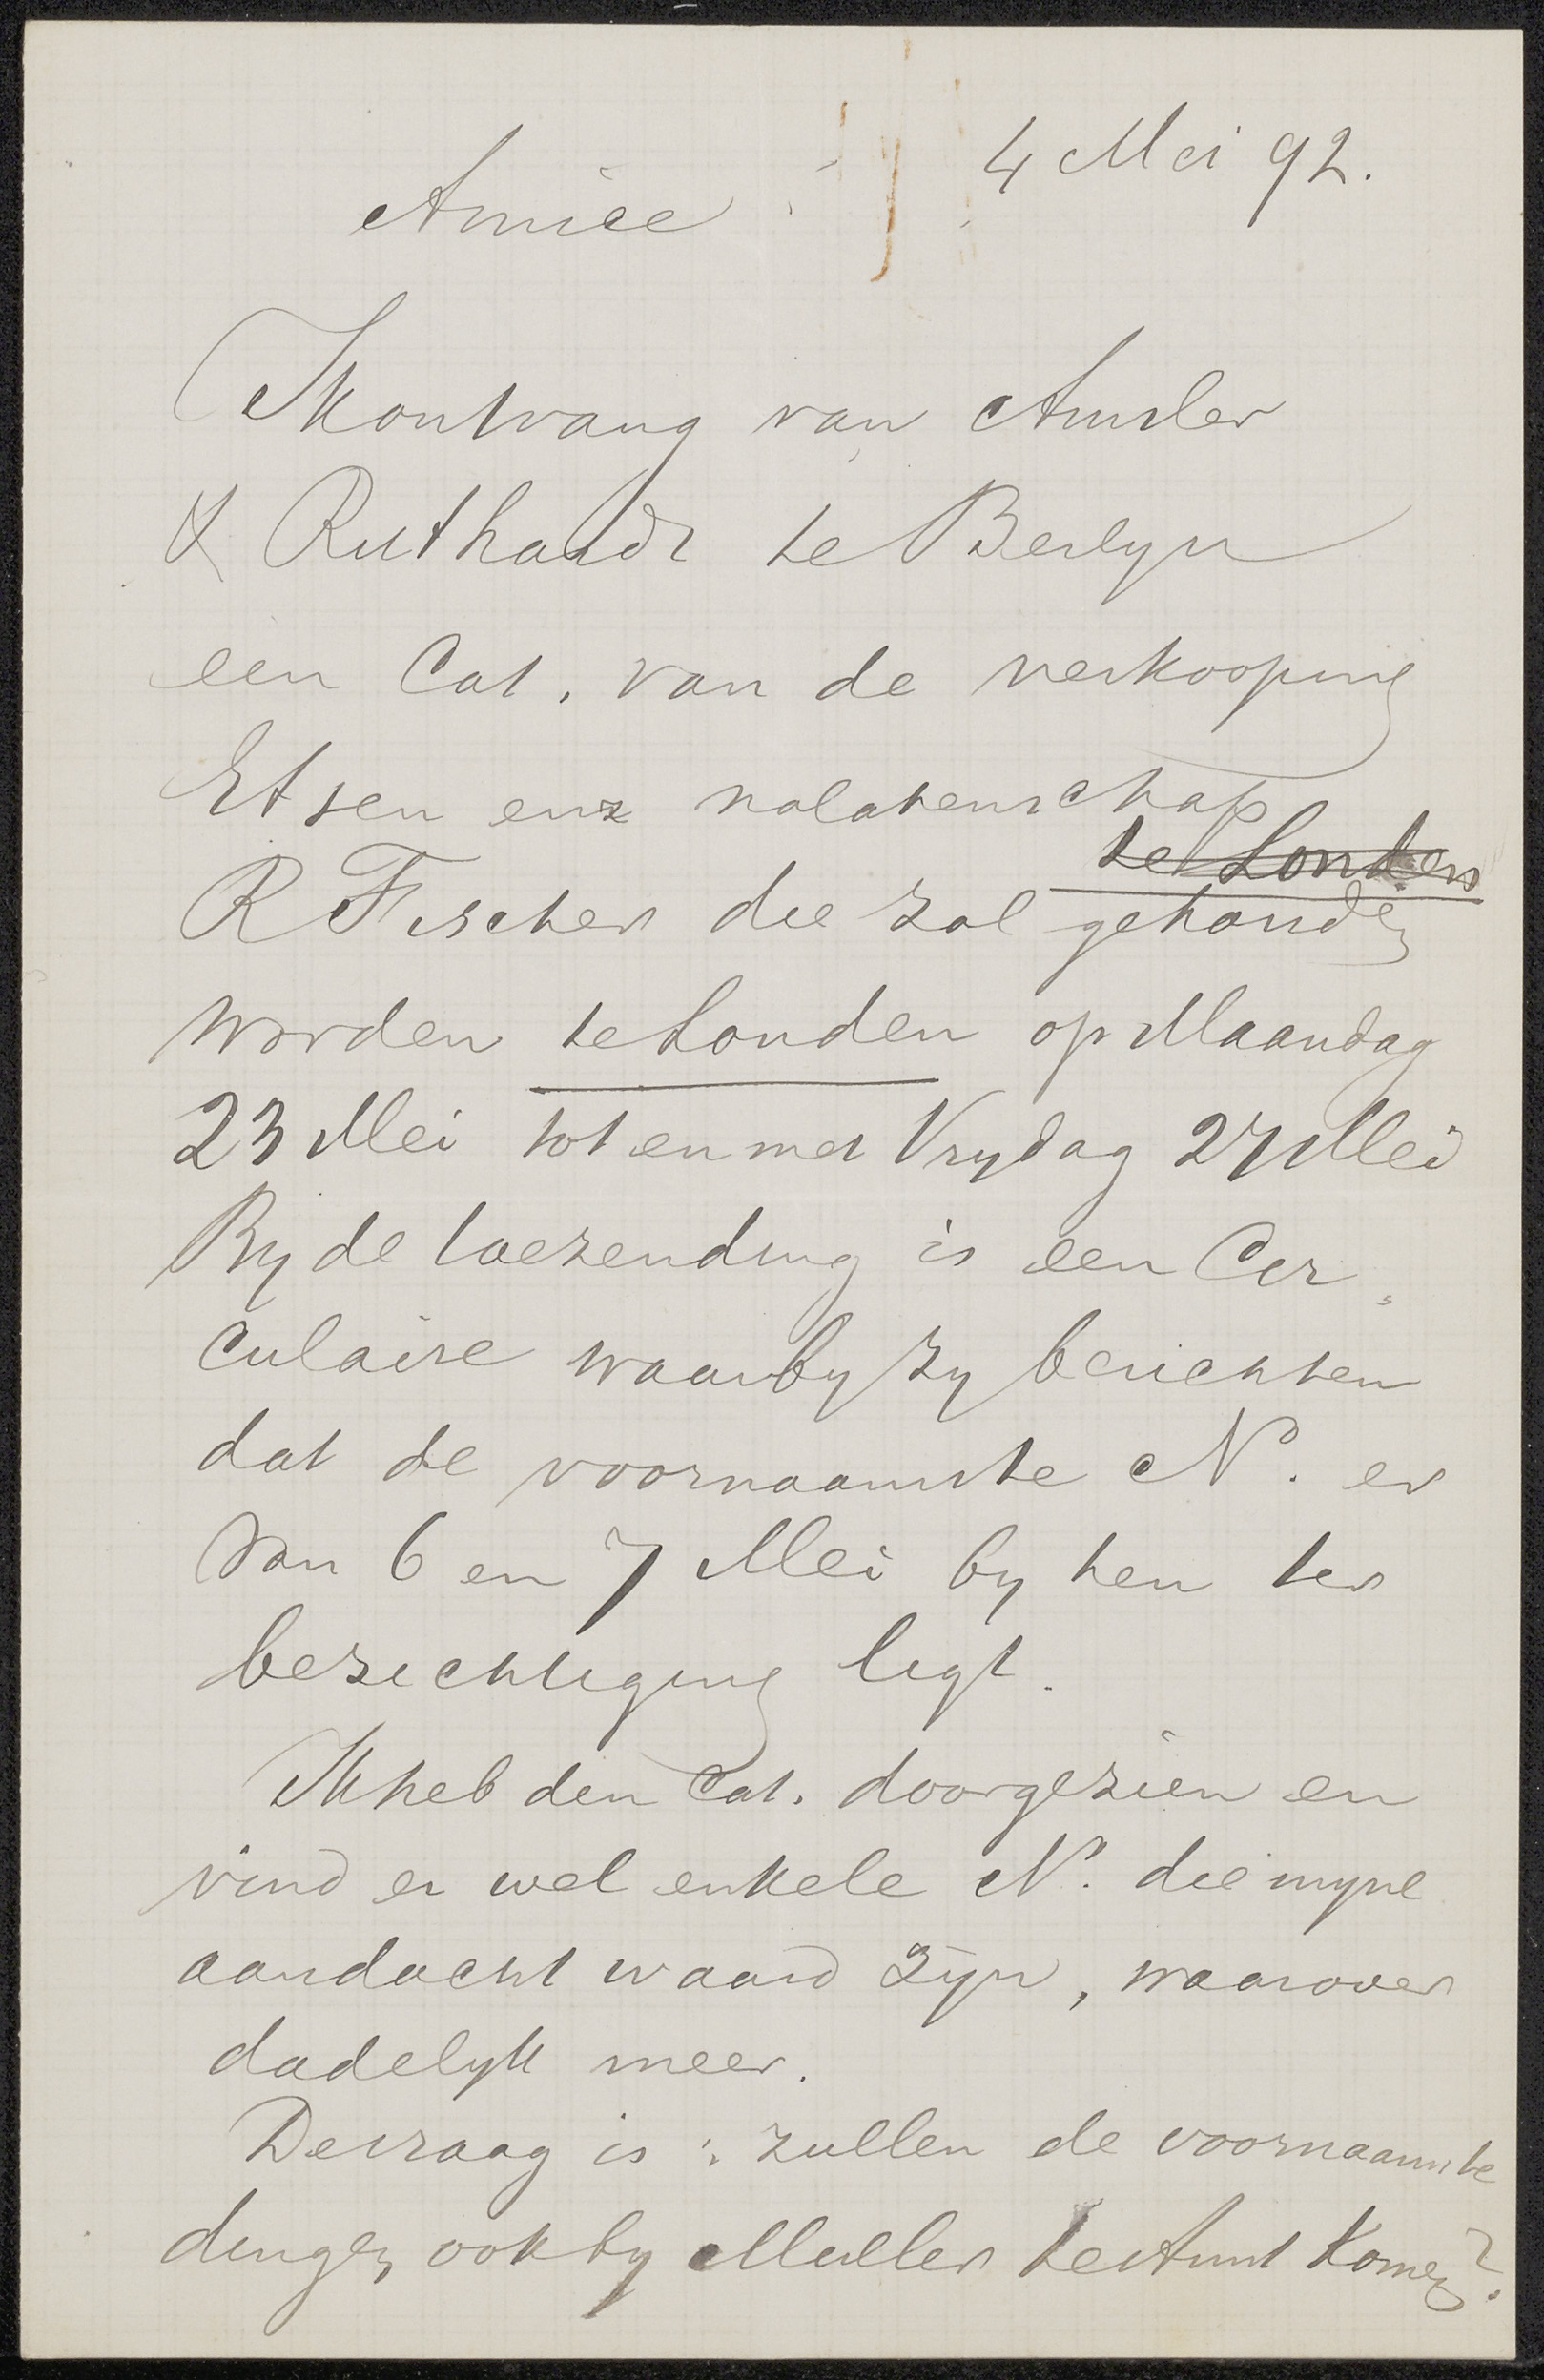 4 Mei 92.
Amice
Ik ontvang van Amsler
& Ruthardt te Berlyn
een Cat. van de verkooping
Etsen enz nalatenschap
te Londen
R Fischer die zal gehouden
worden te Londen op Maandag
23 Mei tot en met Vrydag 27 Mei
By de toezending is een Cir„
culaire waarby zy berichten
dat de voornaamste No. er
van 6 en 7 Mei by hen ter
bezichtiging ligt.
Ik heb den Cat. doorgezien en
vind er wel enkele No. die myne
aandacht waard zyn, waarover
dadelyk meer.
De vraag is: zullen de voornaamste
dingen ook by Muller te Amst komen?